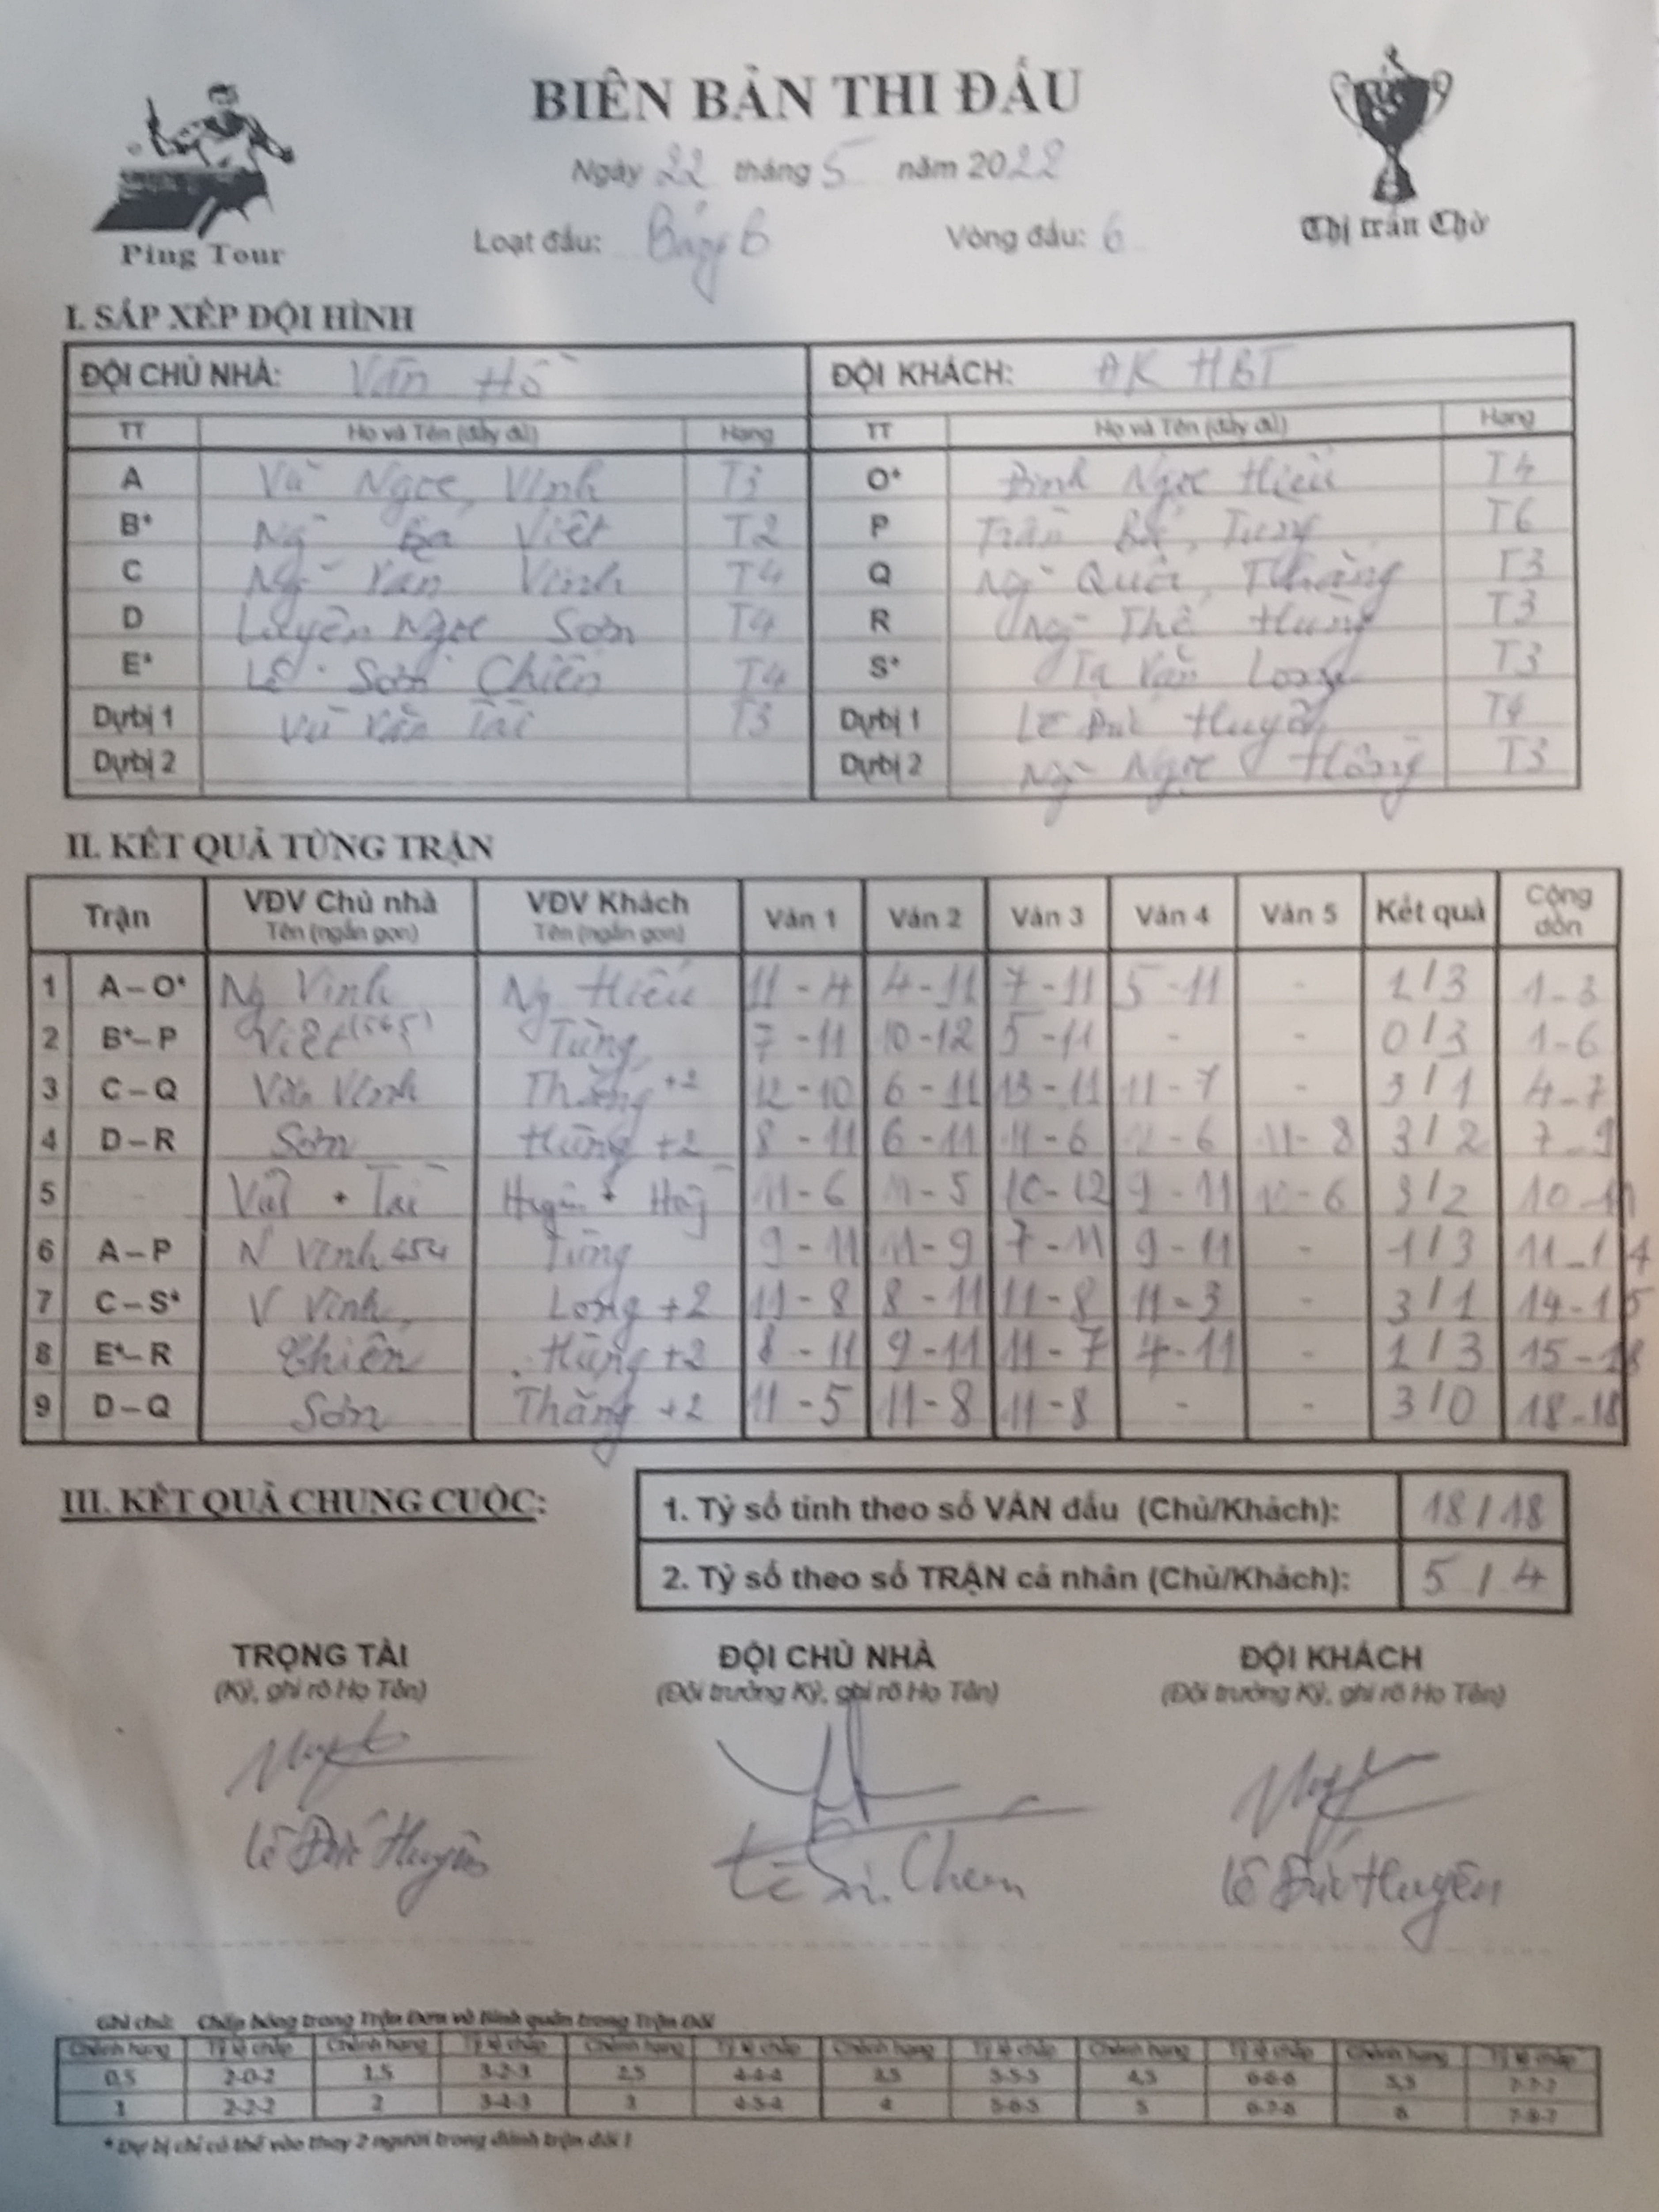 BIÊN BẢN THI ĐẤU
Ngày 22 tháng 5 năm 2022
Ping Tour
Loạt đấu: Bảng B Vòng đấu: 6
Thị trấn Chờ
I. SẮP XẾP ĐỘI HÌNH
ĐỘI CHỦ NHÀ: Vân Hồ ĐỘI KHÁCH: ĐK HBT
TT Họ và Tên (đầy đủ) Hạng TT Họ và Tên (đầy đủ) Hạng
A Vũ Ngọc Vinh T3 O* Đinh Ngọc Hiếu T4
B* Ng~ Bá Việt T2 P Trần Bá Tùng T6
C Ng~ Văn Vinh T4 Q Ng~ Quốc Thắng T3
D Luyện Ngọc Sơn T4 R Ng~ Thế Hùng T3
E* Lê Sơn Chiến T4 S* Tạ Văn Long T3
Dự bị 1 Vũ Văn Tài T3 Dự bị 1 Lê Đức Huyên T4
Dự bị 2 Dự bị 2 Ng~ Ngọc T3
II. KẾT QUẢ TỪNG TRẬN
Trận VĐV Chủ nhà Tên (ngắn gọn) VĐV Khách Tên (ngắn gọn) Ván 1 Ván 2 Ván 3 Ván 4 Ván 5 Kết quả Cộng dồn
1 A – O* Ng Vinh Ng Hiếu 11 - 4 4 - 11 7 - 11 5 - 11 - 1 / 3 1 - 3
2 B* – P Việt (565) Tùng 7 - 11 10 - 12 5 - 11 - - 0 / 3 1 - 6
3 C – Q Văn Vinh Thắng +2 12 - 10 6 - 11 13 - 11 11 - 7 - 3 / 1 4 - 7
4 D – R Sơn Hùng +2 8 - 11 6 - 11 11 - 6 11 - 6 11 - 8 3 / 2 7 - 9
5 Việt + Tài Huyên + 11 - 6 11 - 5 10 - 12 9 - 11 - 6 3 / 2 10 - 11
6 A – P N Vinh 454 Tùng 9 - 11 11 - 9 7 - 11 9 - 11 - 1 / 3 11 - 14
7 C – S* V Vinh Long +2 11 - 8 8 - 11 11 - 8 11 - 3 - 3 / 1 14 - 15
8 E* – R Chiến Hùng +2 8 - 11 9 - 11 11 - 7 4 - 11 - 1 / 3 15 - 18
9 D – Q Sơn Thắng +2 11 - 5 11 - 8 11 - 8 - - 3 / 0 18 - 18
III. KẾT QUẢ CHUNG CUỘC:
1. Tỷ số tính theo số VÁN đấu (Chủ/Khách): 18 / 18
2. Tỷ số theo số TRẬN cá nhân (Chủ/Khách): 5 / 4
TRỌNG TÀI ĐỘI CHỦ NHÀ ĐỘI KHÁCH
(Ký, ghi rõ Họ Tên) (Đội trưởng Ký, ghi rõ Họ Tên) (Đội trưởng Ký, ghi rõ Họ Tên)
Lê Đức Huyên Lê Sơn Lê Đức Huyên
Ghi chú: Chấp bóng trong Trận Đơn và Bình quân trong Trận Đôi
Chênh hạng Tỷ lệ chấp Chênh hạng Tỷ lệ chấp Chênh hạng Tỷ lệ chấp Chênh hạng Tỷ lệ chấp Chênh hạng Tỷ lệ chấp Chênh hạng Tỷ lệ chấp
0,5 2-0-2 1,5 3-2-3 2,5 4-4-4 3,5 5-5-5 4,5 6-6-6 5,5 7-7-7
1 2-2-2 2 3-4-3 3 4-5-4 4 5-6-5 5 6-7-6 6 7-8-7
* Dự bị chỉ có thể vào thay 2 người trong đánh trận đôi !